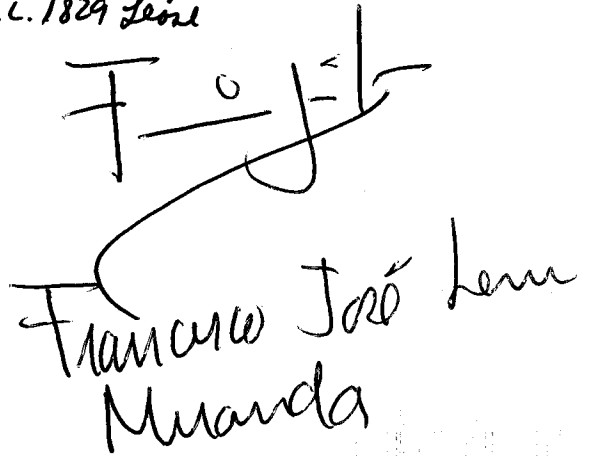 .L. 1829 León
Francisco José Lem
Miranda